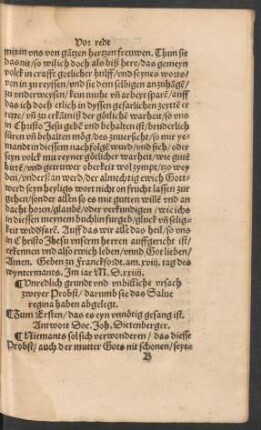 Vor rede
mich in vns von gãtzen hertzen frewen. Thun sie
das nit / so wil ich doch als biß here / das gemeyn
volck in crafft gotlicher hülff / vnd seynes worts /
von in zu reyssen / vnd sie dem selbigen anzuhãgē /
zu vnderweysen / kein muhe vñ arbeyt sparē / auff
das ich doch etlich in dyssen geferlichen zeyttē er
rette / vñ zu erkãtnüß der götliche warheit / so vns
in Christo Jesu gebē vnd behalten ist / bruderlich
füren vñ behalten mög / des zuuersicht / so mir ye-
mandt in diessem nachfolgē würdt / oder
seyn volck mit reyner götlicher warheit / wie gute
hirt / vnd getruwer oberkeit wol zympt / zo wey
den / vnderstan werd / der almechtig ewich Gott /
werd seyn heyligs wort nicht on frucht lassen zur
gehen / sonder allen so es mit gutten willē vnd an
dacht hören / glaubē / oder verkündigen / wie ichs
in diessen meynem büchlin fürgib / glück vñ selig-
keit widdfarē. Auff das wir alle das heil / so vns
in Christo Jhesu vnserm herren auffgericht ist /
erkennen vnd also ewich leben / vnnd Got lieben /
Amen. Geben zu Franckfordt. am. xviij. tag des
wyntermants. Im iar M. D. xxiiij.
¶ Vnredlich grundt vnd vnbilliche vrsach
zweyer Probst / darumb sie das Salue
regina haben abgelegt.
¶ Zum Ersten / das es eyn vnnötig gesang ist.
Antwort Doc. Joh. Dietenberger.
¶ Niemants sol sich verwonderen / das diesse
Probst / auch der mutter Gots nit schonen / seyts
B